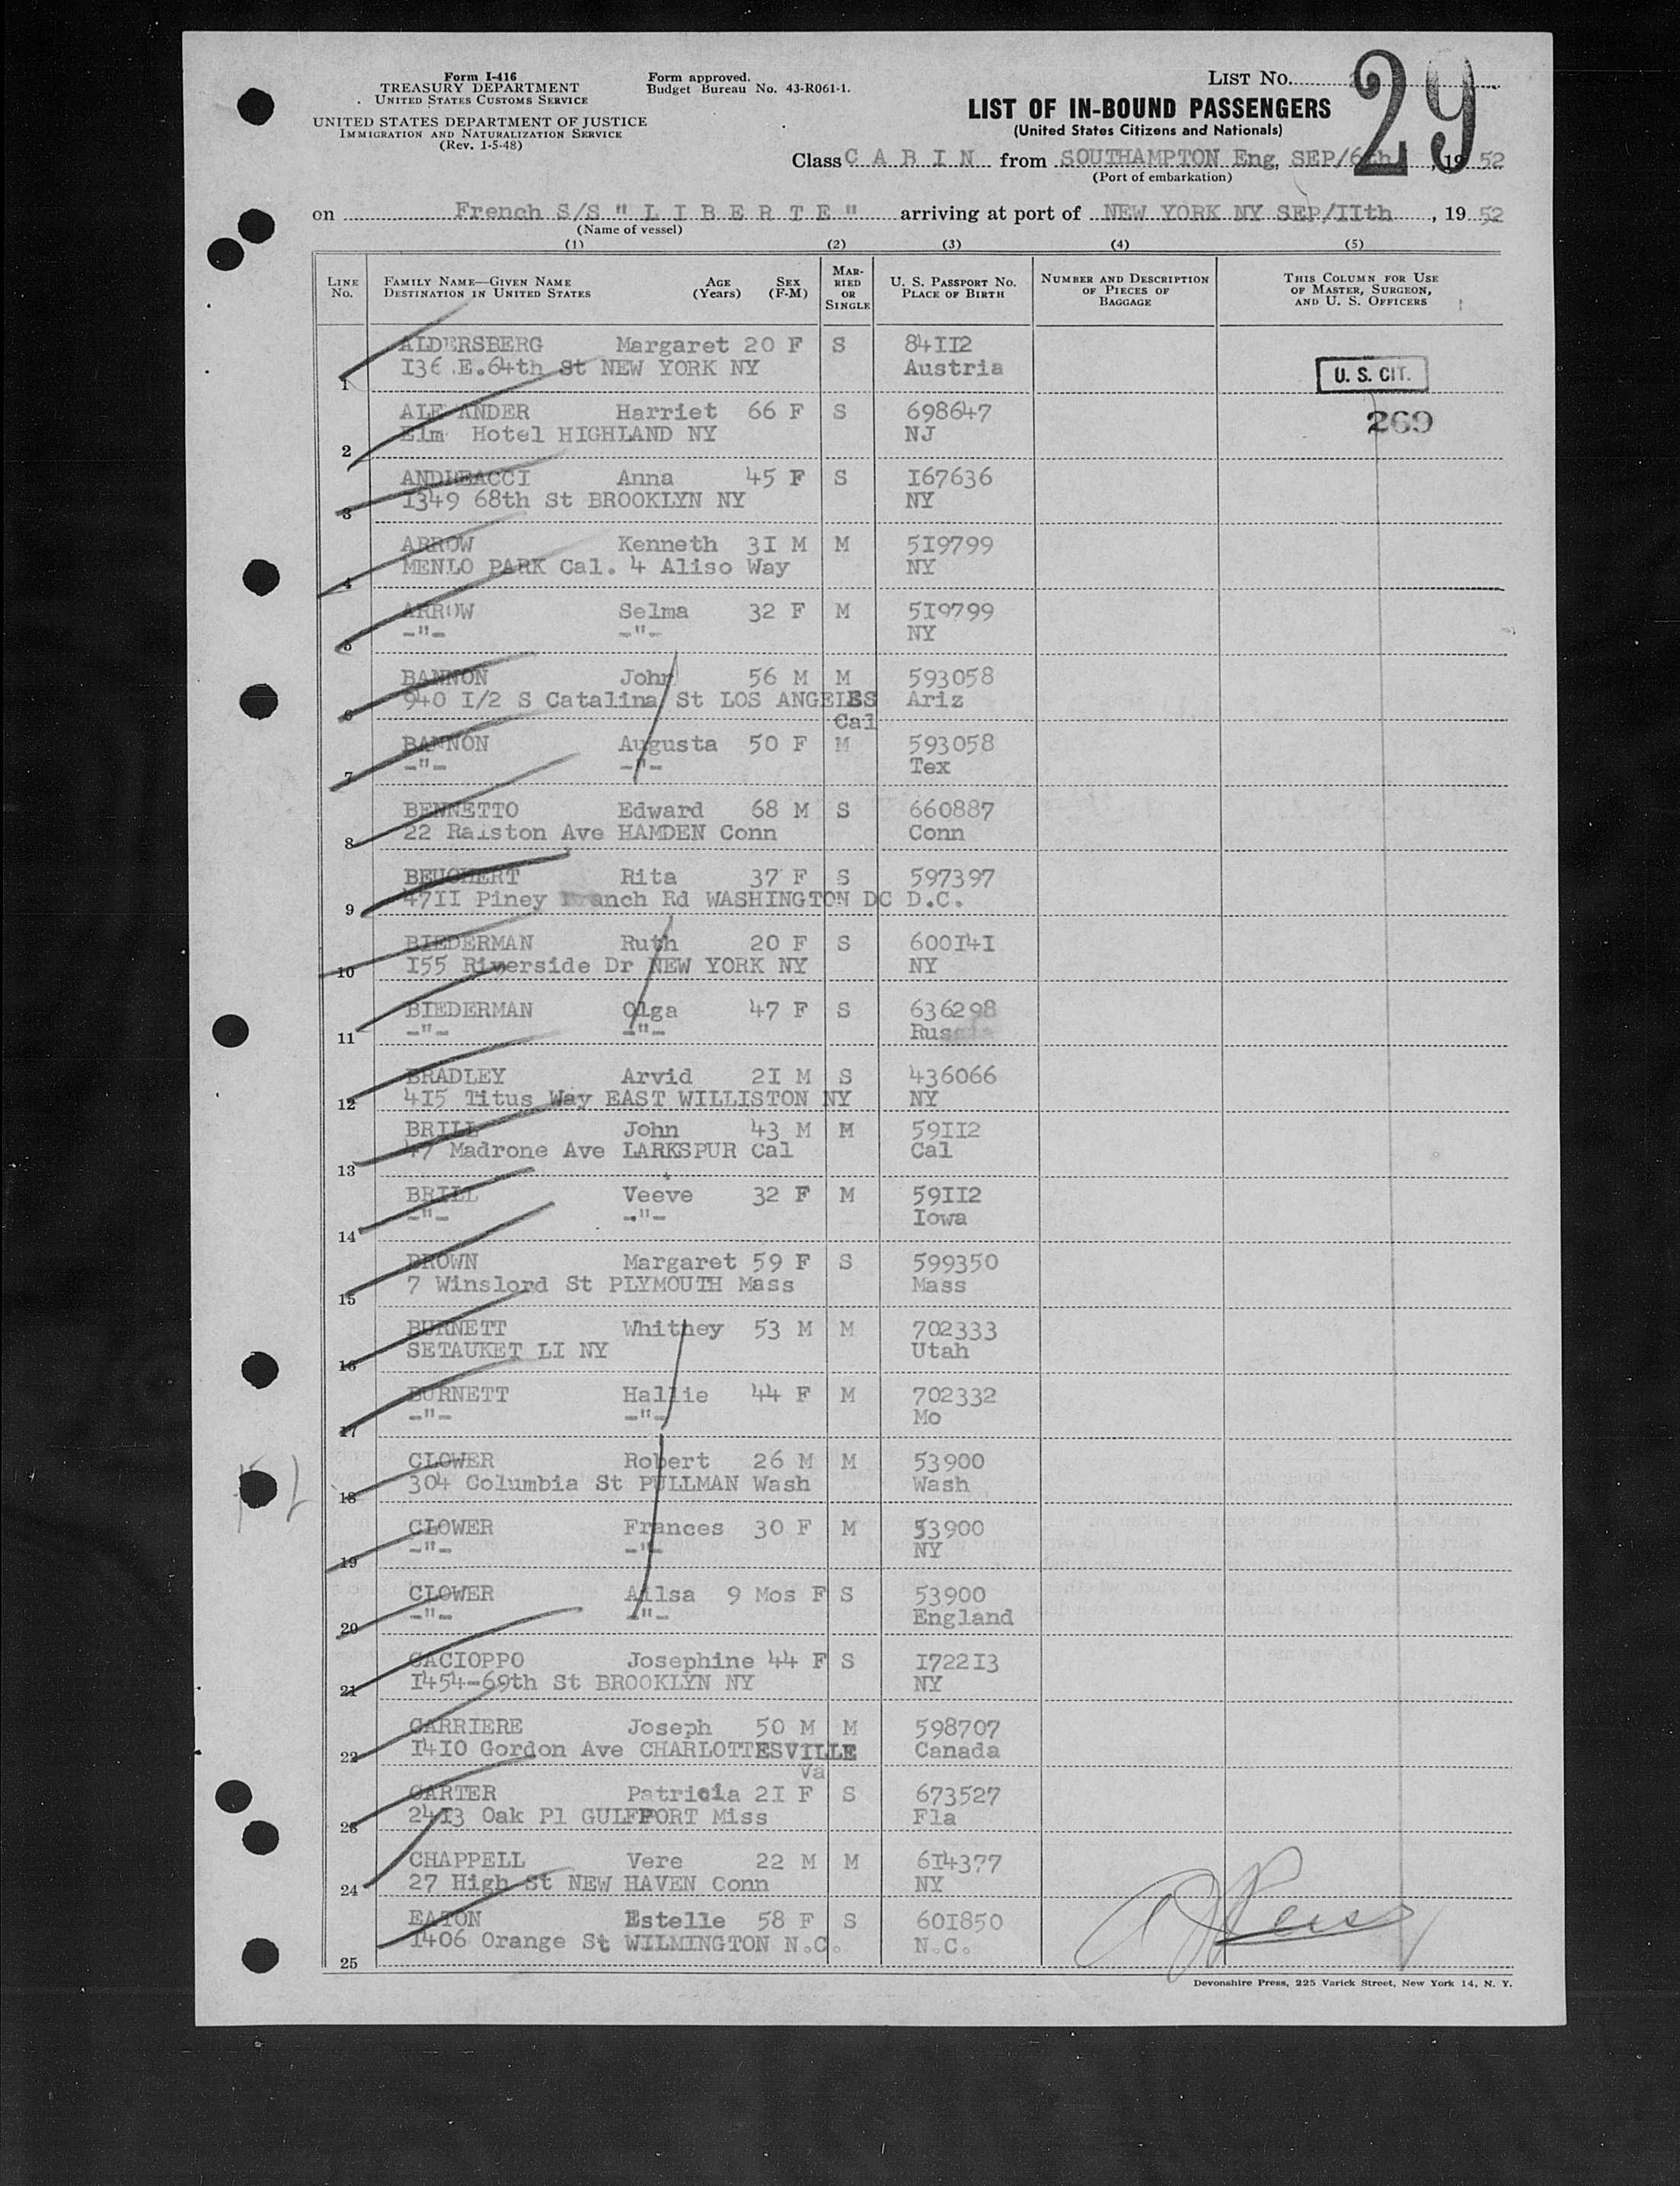 Form I-416
TREASURY DEPARTMENT
UNITED STATES CUSTOMS SERVICE
UNITED STATES DEPARTMENT OF JUSTICE
IMMIGRATION AND NATURALIZATION SERVICE
(Rev. 1-5-48)
Form approved.
Budget Bureau No. 43-R061-1.
LIST NO. 29
LIST OF IN-BOUND PASSENGERS
(United States Citizens and Nationals)
Class C A B I N from SOUTHAMPTON Eng, SEP/6th, 19 52
(Port of embarkation)
on French S/S " L I B E R T E " arriving at port of NEW YORK NY SEP/IIth, 19 52
(Name of vessel)
(1) (2) (3) (4) (5)
LINE NO. FAMILY NAME—GIVEN NAME DESTINATION IN UNITED STATES AGE (Years) SEX (F-M) MARRIED OR SINGLE U. S. PASSPORT NO. PLACE OF BIRTH NUMBER AND DESCRIPTION OF PIECES OF BAGGAGE THIS COLUMN FOR USE OF MASTER, SURGEON, AND U. S. OFFICERS
ALDERSBERG Margaret 20 F S 84II2
1 I36 E.64th St NEW YORK NY Austria U. S. CIT.
ALE ANDER Harriet 66 F S 698647 269
2 Elm Hotel HIGHLAND NY NJ
ANDREACCI Anna 45 F S I67636
3 I349 68th St BROOKLYN NY NY
ARROW Kenneth 3I M M 5I9799
4 MENLO PARK Cal. 4 Aliso Way NY
ARROW Selma 32 F M 5I9799
5 -"- -"- NY
BANNON John 56 M M 593058
6 940 I/2 S Catalina St LOS ANGELES Cal Ariz
BANNON Augusta 50 F M 593058
7 -"- -"- Tex
BENNETTO Edward 68 M S 660887
8 22 Ralston Ave HAMDEN Conn Conn
BEUCHERT Rita 37 F S 597397
9 47II Piney Branch Rd WASHINGTON DC D.C.
BIEDERMAN Ruth 20 F S 600I4I
10 I55 Riverside Dr NEW YORK NY NY
BIEDERMAN Olga 47 F S 636298
11 -"- -"- Russia
BRADLEY Arvid 2I M S 436066
12 4I5 Titus Way EAST WILLISTON NY NY
BRILL John 43 M M 59II2
13 47 Madrone Ave LARKSPUR Cal Cal
BRILL Veeve 32 F M 59II2
14 -"- -"- Iowa
BROWN Margaret 59 F S 599350
15 7 Winslord St PLYMOUTH Mass Mass
BURNETT Whitney 53 M M 702333
16 SETAUKET LI NY Utah
BURNETT Hallie 44 F M 702332
17 -"- -"- Mo
CLOWER Robert 26 M M 53900
18 304 Columbia St PULLMAN Wash Wash
CLOWER Frances 30 F M 53900
19 -"- -"- NY
CLOWER Ailsa 9 Mos F S 53900
20 -"- -"- England
CACIOPPO Josephine 44 F S I722I3
21 I454-69th St BROOKLYN NY NY
CARRIERE Joseph 50 M M 598707
22 I4I0 Gordon Ave CHARLOTTESVILLE Va Canada
CARTER Patricia 2I F S 673527
23 24I3 Oak Pl GULFPORT Miss Fla
CHAPPELL Vere 22 M M 6I4377
24 27 High St NEW HAVEN Conn NY
EATON Estelle 58 F S 60I850
25 I406 Orange St WILMINGTON N.C. N.C.
Devonshire Press, 225 Varick Street, New York 14, N. Y.